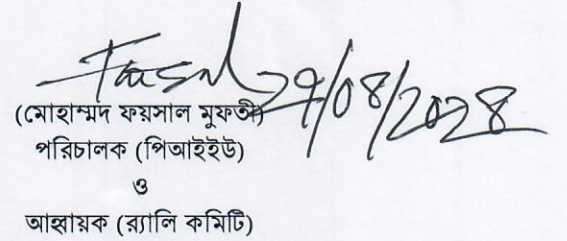 Faisal 29/08/2028
(মোহাম্মদ ফয়সাল মুফতী)
পরিচালক (পিআইইউ)
ও
আহ্বায়ক (র‍্যালি কমিটি)